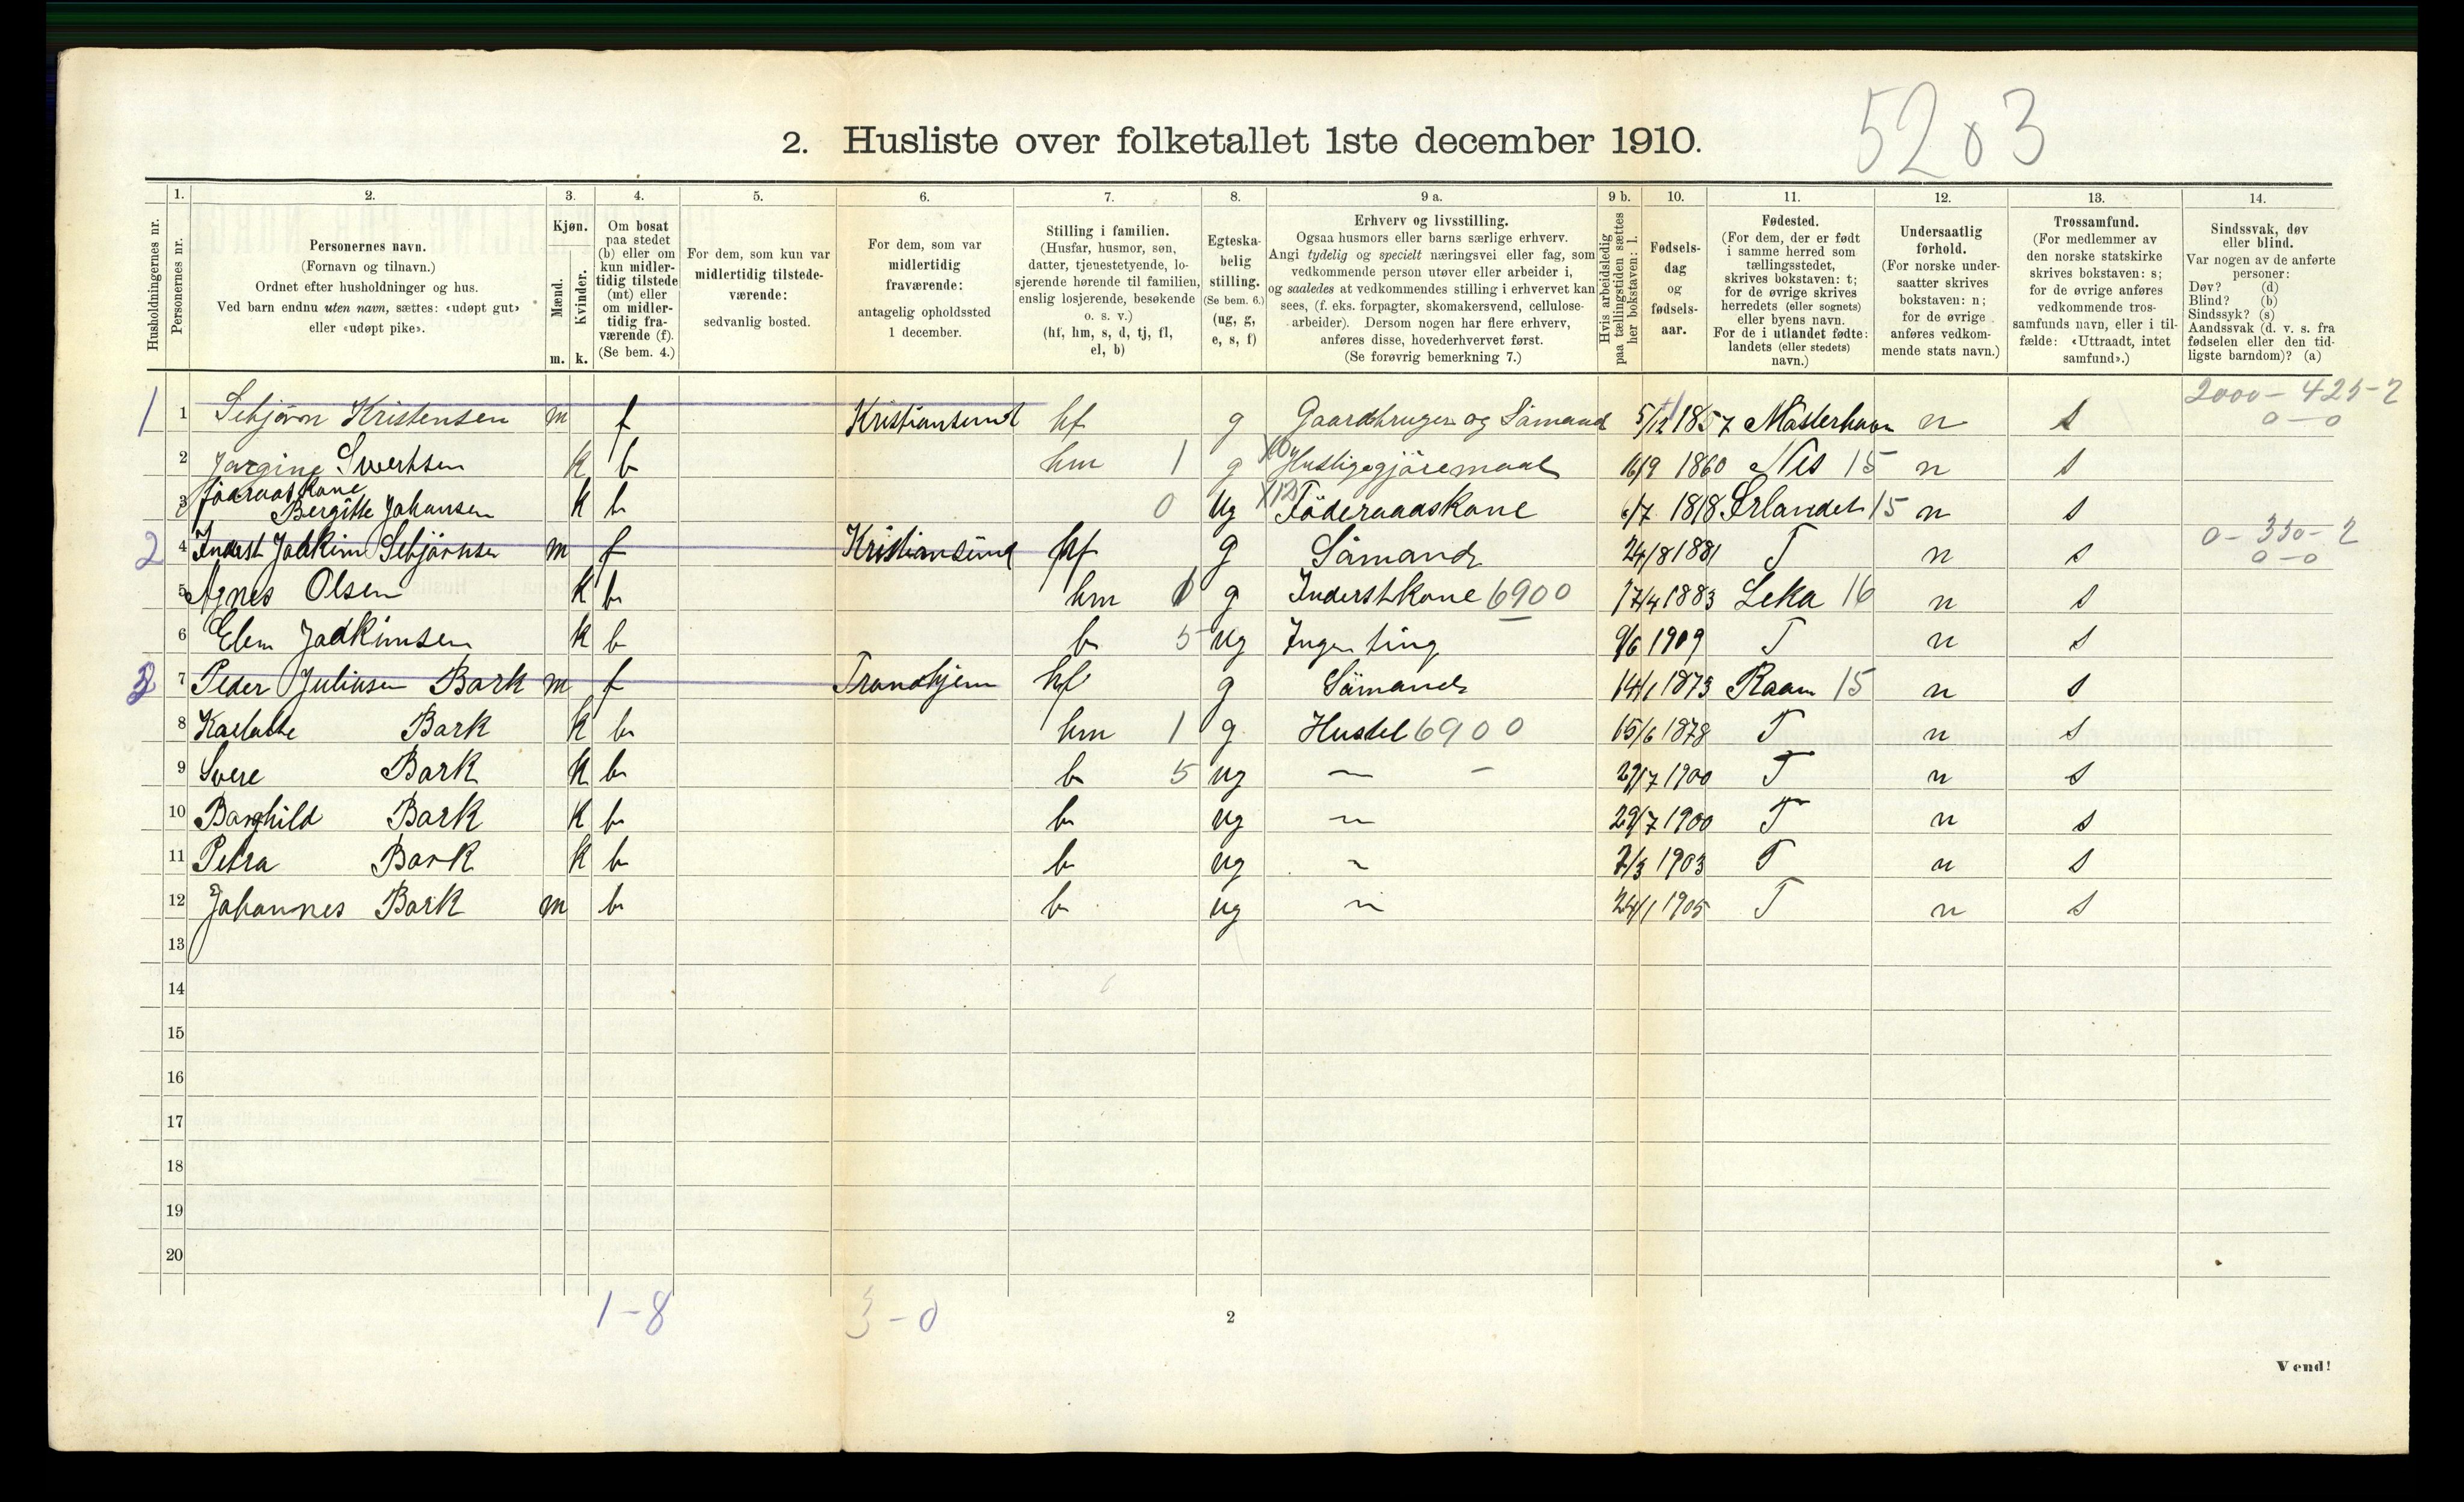 5203
2. Husliste over folketallet 1ste december 1910.
Husholdningernes nr.
1.
Personernes nr.
2.
Personernes navn.
(Fornavn og tilnavn.)
Ordnet efter husholdninger og hus.
Ved barn endnu uten navn, sættes: «udøpt gut»
eller «udøpt pike».
3.
Kjøn.
Mænd.
Kvinder.
m. k.
4.
Om bosat
paa stedet
(b) eller om
kun midler-
tidig tilstede
(mt) eller
om midler-
tidig fra-
værende (f).
(Se bem. 4.)
5.
For dem, som kun var
midlertidig tilstede-
værende:
sedvanlig bosted.
6.
For dem, som var
midlertidig
fraværende:
antagelig opholdssted
1 december.
7.
Stilling i familien.
(Husfar, husmor, søn,
datter, tjenestetyende, lo-
sjerende hørende til familien,
enslig losjerende, besøkende
o. s. v.)
(hf, hm, s, d, tj, fl,
el, b)
8.
Egteska-
belig
stilling.
(Se bem. 6.)
(ug, g,
e, s, f)
9 a.
Erhverv og livsstilling.
Ogsaa husmors eller barns særlige erhverv.
Angi tydelig og specielt næringsvei eller fag, som
vedkommende person utøver eller arbeider i,
og saaledes at vedkommendes stilling i erhvervet kan
sees, (f. eks. forpagter, skomakersvend, cellulose-
arbeider). Dersom nogen har flere erhverv,
anføres disse, hovederhvervet først.
(Se forøvrig bemerkning 7.)
9 b.
Hvis arbeidsledig
paa tællingstiden sættes
her bokstaven: l.
10.
Fødsels-
dag
og
fødsels-
aar.
11.
Fødested.
(For dem, der er født
i samme herred som
tællingsstedet,
skrives bokstaven: t;
for de øvrige skrives
herredets (eller sognets)
eller byens navn.
For de i utlandet fødte:
landets (eller stedets)
navn.)
12.
Undersaatlig
forhold.
(For norske under-
saatter skrives
bokstaven: n;
for de øvrige
anføres vedkom-
mende stats navn.)
13.
Trossamfund.
(For medlemmer av
den norske statskirke
skrives bokstaven: s;
for de øvrige anføres
vedkommende tros-
samfunds navn, eller i til-
fælde: «Uttraadt, intet
samfund».)
14.
Sindssvak, døv
eller blind.
Var nogen av de anførte
personer:
Døv? (d)
Blind? (b)
Sindssyk? (s)
Aandssvak (d. v. s. fra
fødselen eller den tid-
ligste barndom)? (a)
2000 - 425 - 2
0 - 0
1 1 Sebjörn Kristensen m f Kristiansund hf g Gaardbruger og Sömand 5/12 1857 n s
2 Jørgine Sivertsen k b hm 1 g Husligegjöremaal 16/9 1860 Nes 15 n s
3 Bergitte Johansen k b 0 ug Föderaadskone 6/7 1818 Örlandet 15 n s
0 - 330 - 2
0 - 0
2 4 Inderst Joakim Sebjörnsen m f Kristiansund hf g Sömand 24/8 1881 T n s
5 Agnes Olsen k b hm 1 g Inderstkone 6900 17/4 1883 Leka 16 n s
6 Elen Joakimsen k b b 5 ug Ingen ting 9/6 1909 T n s
3 7 Peder Juliusen Bark m f Trondhjem hf g Sömand 14/1 1873 Roan 15 n s
8 Bark k b hm 1 g Husstel 6900 15/6 1878 T n s
9 Bark k b b 5 ug — – 29/7 1900 T n s
10 Borghild Bark k b b ug — 29/7 1900 T n s
11 Petra Bark k b b ug — 7/3 1903 T n s
12 Johannes Bark m b b ug — 24/1 1905 T n s
13
14
15
16
17
18
19
20
1 - 8
3 - 0
2
Vend!